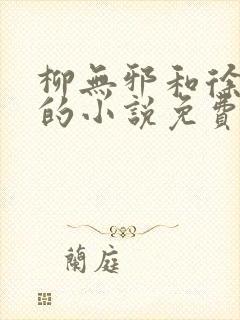 柳無邪和徐
的小說免費
蘭庭